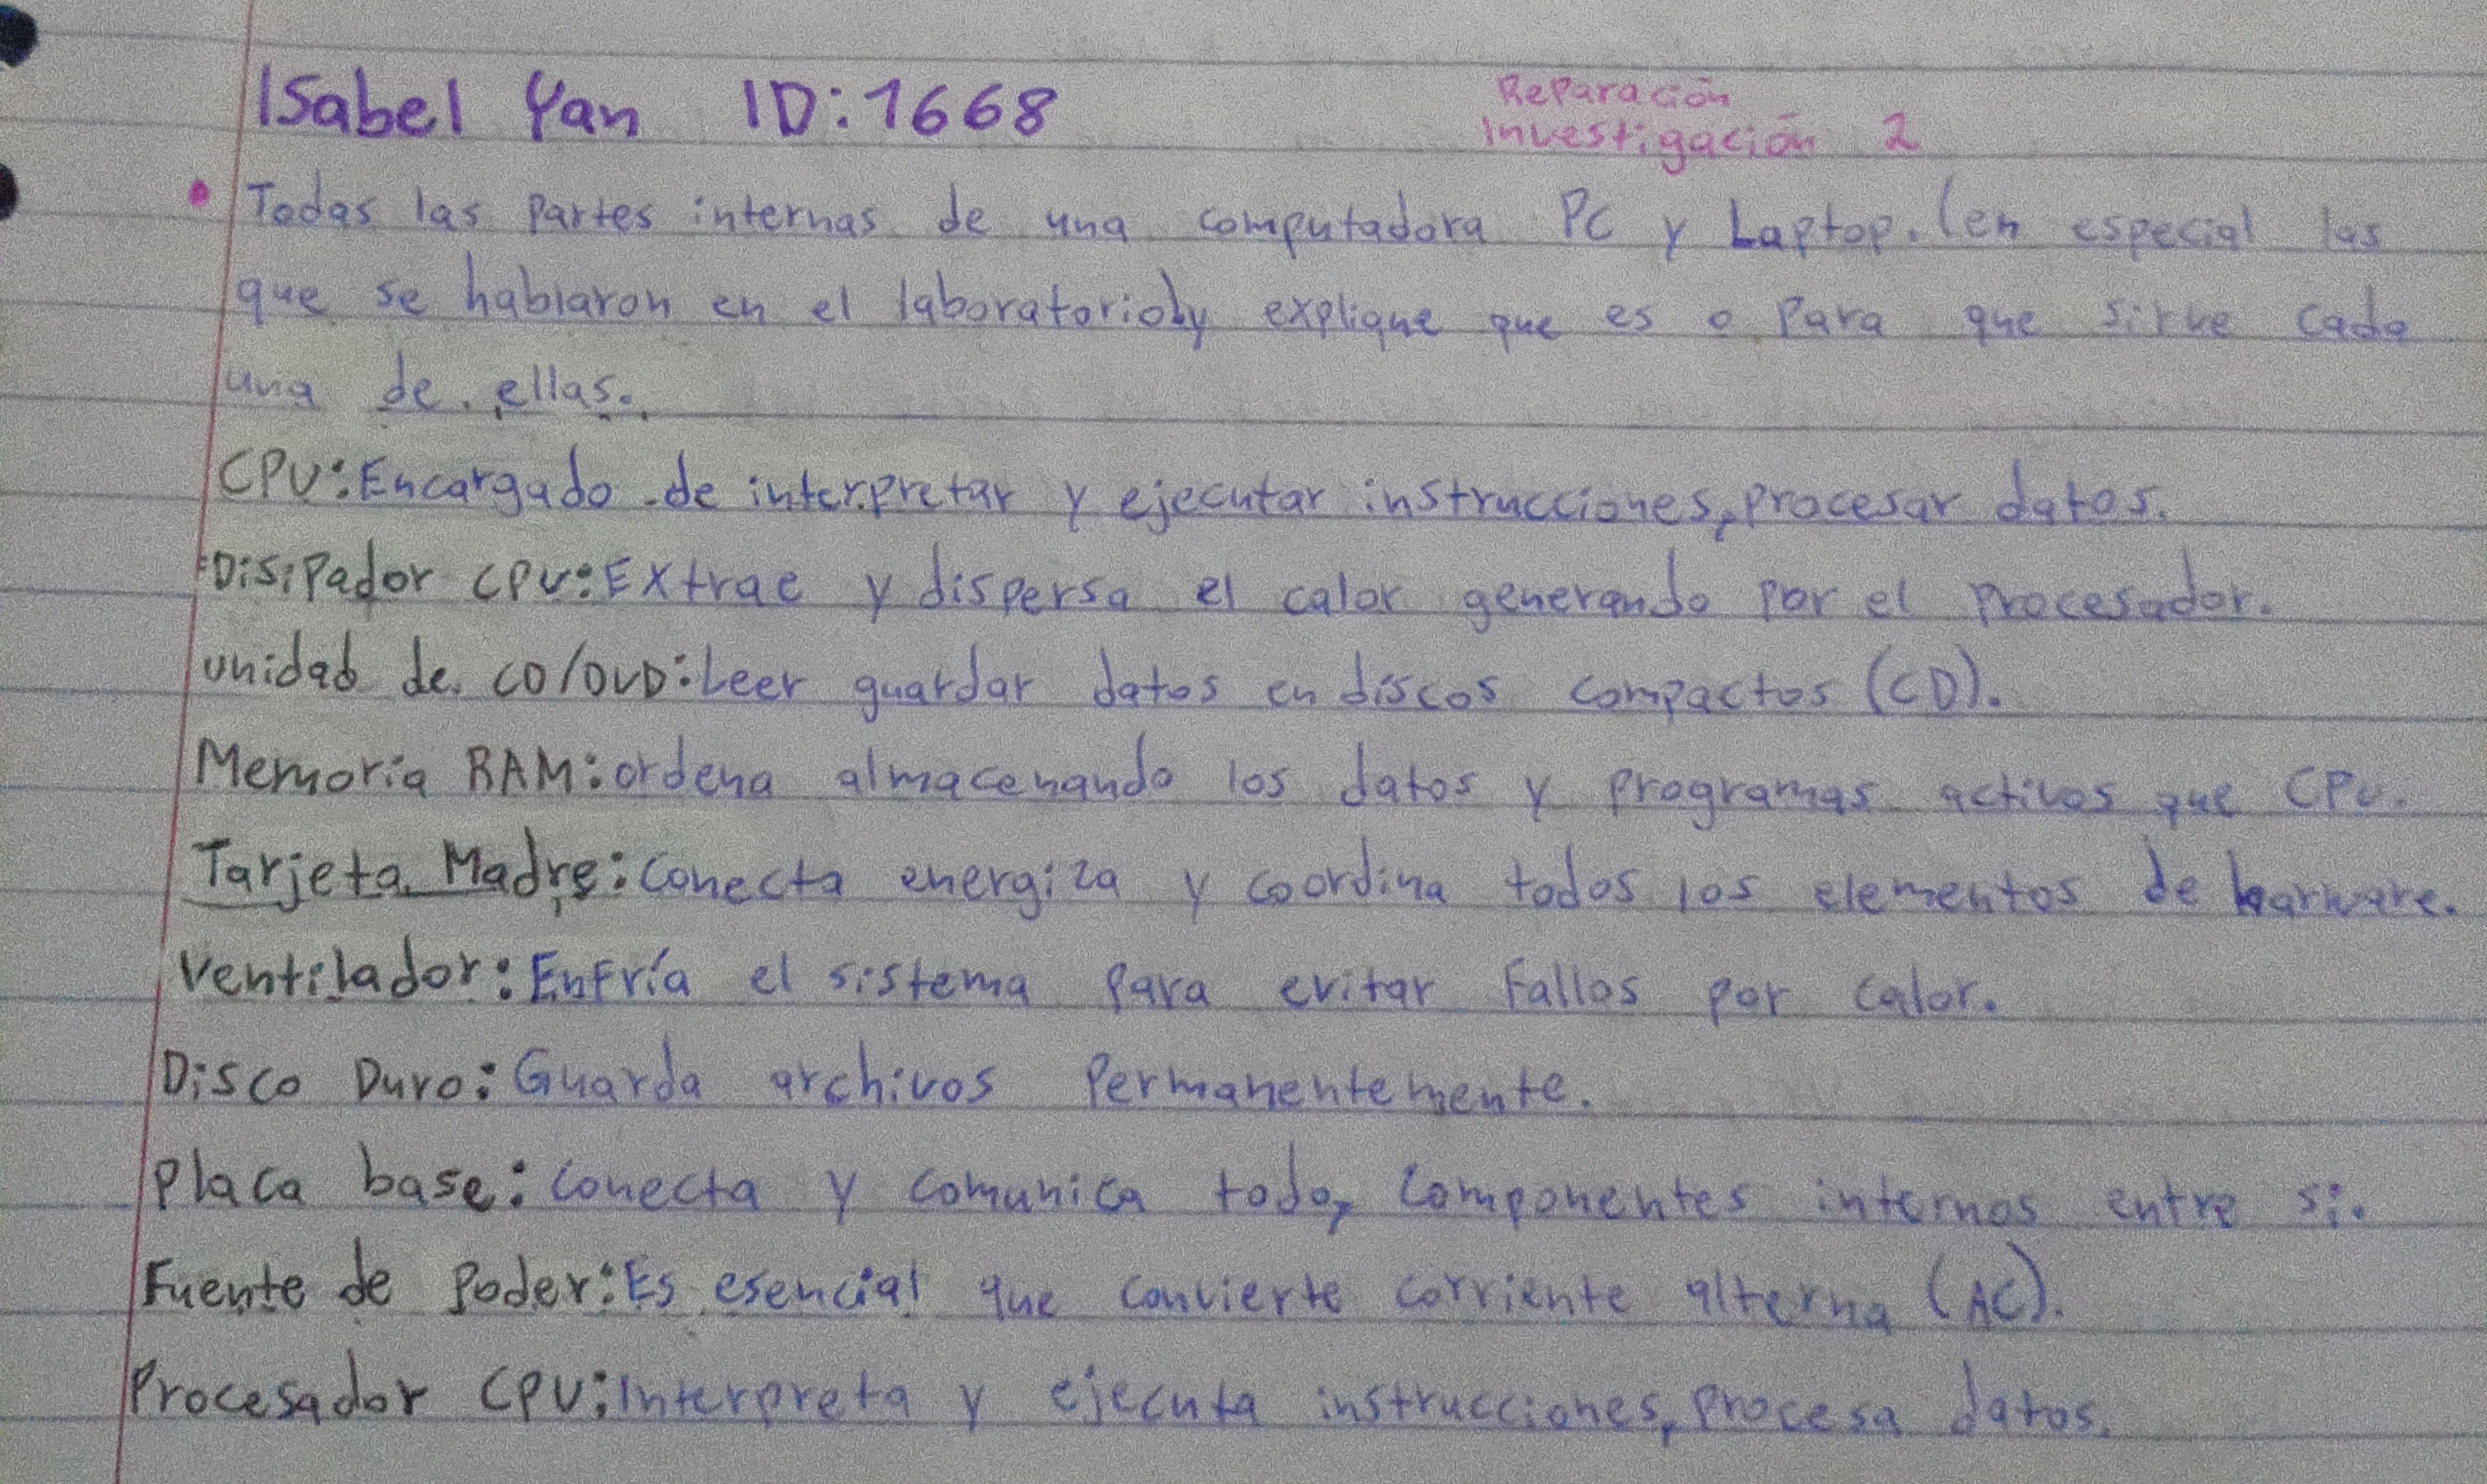 Isabel Yan ID:1668
Reparación
Investigación 2
• Todas las partes internas de una computadora PC y Laptop. (en especial las
que se hablaron en el laboratorio)y explique que es o para que sirve cada
una de ellas.
CPU: Encargado de interpretar y ejecutar instrucciones, procesar datos.
Disipador CPU: Extrae y dispersa el calor generando por el procesador.
unidad de CD/DVD: Leer guardar datos en discos compactos (CD).
Memoria RAM: ordena almacenando los datos y programas activos que CPU.
Tarjeta Madre: Conecta energiza y coordina todos los elementos de harware.
Ventilador: Enfría el sistema para evitar fallos por calor.
Disco Duro: Guarda archivos Permanentemente.
Placa base: Conecta y comunica todo, componentes internos entre si.
Fuente de Poder: Es esencial que convierte corriente alterna (AC).
Procesador CPU; Interpreta y ejecuta instrucciones, procesa datos.